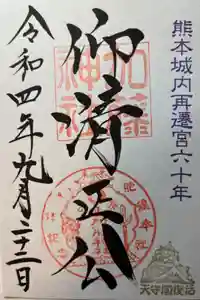 熊本城内再遷宮六十年
加藤神社
仰清正公
令和四年九月二十三日
天守閣復活